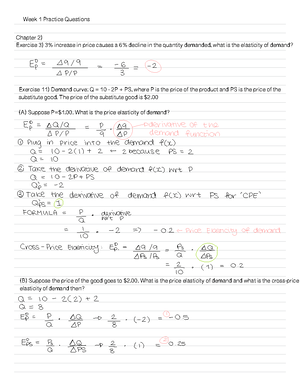 Week 1 Practice Questions
Chapter 2)
Exercise 3) 3% increase in price causes a 6% decline in the quantity demanded, what is the elasticity of demand?
E_P^D = Δq/q / ΔP/P = -6/3 = -2
Exercise 11) Demand curve: Q = 10 - 2P + PS, where P is the price of the product and PS is the price of the
substitute good. The price of the substitute good is $2.00
(A) Suppose P=$1.00. What is the price elasticity of demand?
E_P^D = ΔQ/Q / ΔP/P = P/q · Δq/ΔP → derivative of the demand function
① Plug in price into the demand f(x)
Q = 10 - 2(1) + 2 ← 2 because PS = 2
Q = 10
② Take the derivative of demand f(x) wrt P
Q = 10 - 2P + PS
Q'_P = -2
③ Take the derivative of demand f(x) wrt PS for "CPE"
Q'_PS = 1
FORMULA = P/Q · derivative wrt P
1/10 · -2 => -0.2 → Price Elasticity of demand
Cross-Price Elasticity: E_P^D = Δq/q / ΔPs/Ps = Ps/Q · ΔQ/ΔPs
= 2/10 · (1) = 0.2
(B) Suppose the price of the goods goes to $2.00. What is the price elasticity of demand and what is the cross-price
elasticity of demand then?
Q = 10 - 2(2) + 2
Q = 8
E_P^D = P/Q · ΔQ/ΔP → 2/8 · (-2) = -0.5
E_PS^D = Ps/Q · ΔQ/ΔPS → 2/8 · (1) = 0.25